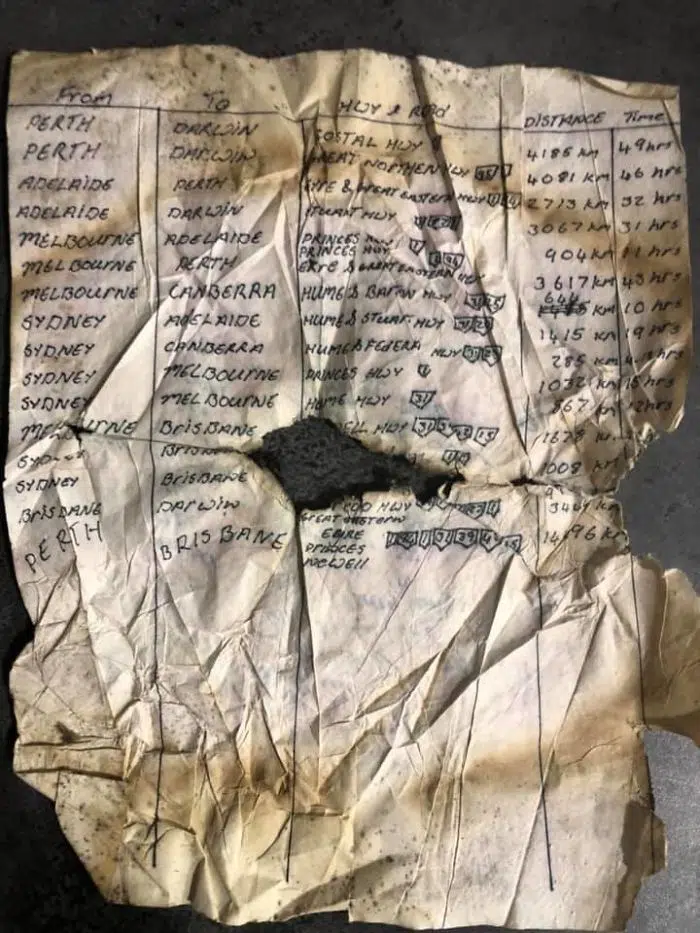 From To HWY & ROAD DISTANCE Time
PERTH DARWIN COSTAL HWY 1 4186 KM 49 hrs
PERTH DARWIN GREAT NORTHEN HWY 4081 KM 46 hrs
ADELAIDE PERTH EYRE & GREAT EASTERN HWY 2713 KM 32 hrs
ADELAIDE DARWIN STUART HWY 3067 KM 31 hrs
MELBOURNE ADELAIDE PRINCES HWY 1 904 KM 11 hrs
MELBOURNE PERTH PRINCES HWY
EYRE & GREAT EASTERN HWY 3617 KM 43 hrs
MELBOURNE CANBERRA HUME & BATAN HWY 31 25 644 KM 10 hrs
SYDNEY ADELAIDE HUME & STURT HWY 31 20 1415 KM 19 hrs
SYDNEY CANBERRA HUME & FEDERA HWY 31 23 285 KM
SYDNEY MELBOURNE PRINCES HWY 1 1032 KM 15 hrs
SYDNEY MELBOURNE HUME HWY 31 867 KM 12 hrs
MELBOURNE BRISBANE ELL HWY 31 1678 KM
SYDNEY BRISBANE 1008 KM
SYDNEY BRISBANE
BRISBANE DARWIN HWY KM
PERTH BRISBANE GREAT EASTERN
EYRE
PRINCES
NEWELL